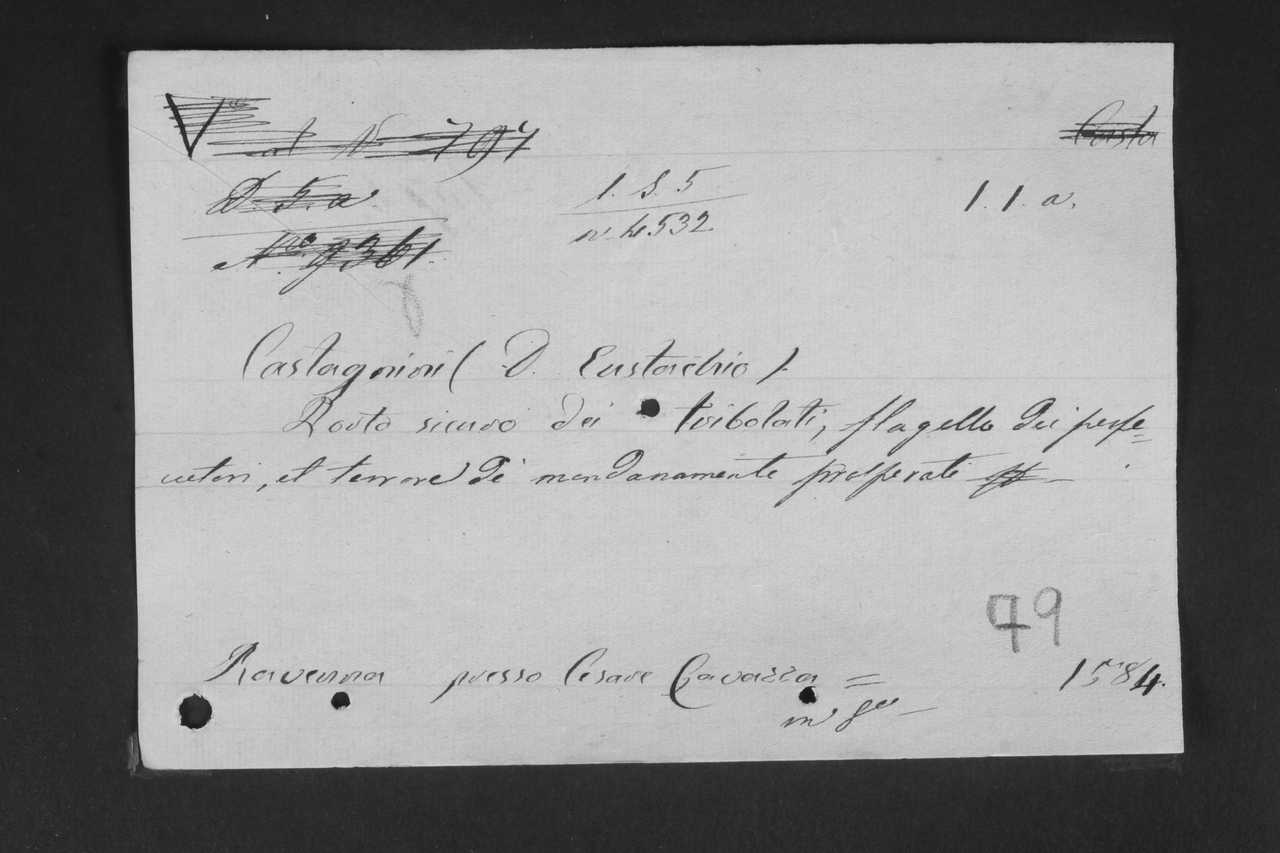 V
N 797
Casta
D. 5. a
1. S. 5
1. 1. a.
n. 4532.
N.ro 9361.
Castagnini ( D. Eustachio ).
Porto sicuro dei tribolati, flagello dei perse=
cutori, et terrore di mondanamente prosperati
79
Ravenna presso Cesare Cavazza = 1584.
in 8°